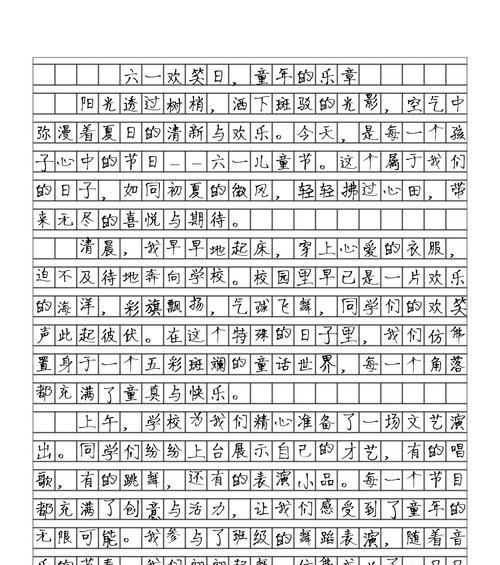 六一欢笑日，童年的乐章
阳光透过树梢，洒下斑驳的光影，空气中
弥漫着夏日的清新与欢乐。今天，是每一个孩
子心中的节日——六一儿童节。这个属于我们
的日子，如同初夏的微风，轻轻拂过心田，带
来无尽的喜悦与期待。
清晨，我早早地起床，穿上心爱的衣服，
迫不及待地奔向学校。校园里早已是一片欢乐
的海洋，彩旗飘扬，气球飞舞，同学们的欢笑
声此起彼伏。在这个特殊的日子里，我们仿佛
置身于一个五彩斑斓的童话世界，每一个角落
都充满了童真与快乐。
上午，学校为我们精心准备了一场文艺演
出。同学们纷纷上台展示自己的才艺，有的唱
歌，有的跳舞，还有的表演小品。每一个节目
都充满了创意与活力，让我们感受到了童年的
无限可能。我参与了班级的舞蹈表演，随着音